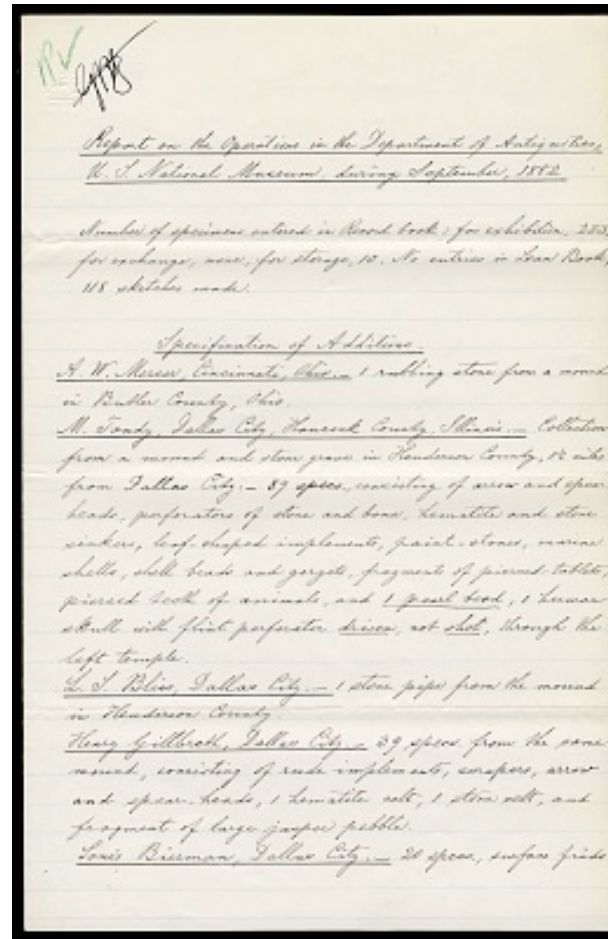 Report on the Operations in the Department of Antiquities,
U. S. National Museum, during September, 1882
Number of specimens entered in Record book: for exhibition,
for exchange, none, for storage, 10. No entries in Loan Book,
118 sketches made.
Specification of Additions.
A. W. Mercer, Cincinnati, Ohio. — 1 rubbing stone from a mound
in Butler County, Ohio.
M. Tandy, Dallas City, Hancock County, Illinois. — Collection
from a mound and stone grave in Henderson County, miles
from Dallas City. — 89 specs., consisting of arrow and spear
heads, perforators of stone and bone, hematite and stone
sinkers, leaf-shaped implements, paint-stones, marine
shells, shell beads and gorgets, fragments of pierced tablets,
pierced teeth of animals, and 1 pearl bead, 1 human
skull with flint perforator driven, not shot, through the
left temple.
L. S. Bliss, Dallas City. — 1 stone pipe from the mound
in Henderson County.
Henry Dallas City — 39 specs from the same
mound, consisting of rude implements, scrapers, arrow
and spear-heads, 1 hematite celt, 1 stone celt, and
fragment of large jasper pebble.
Louis Bierman, Dallas City. — 20 specs., surface finds